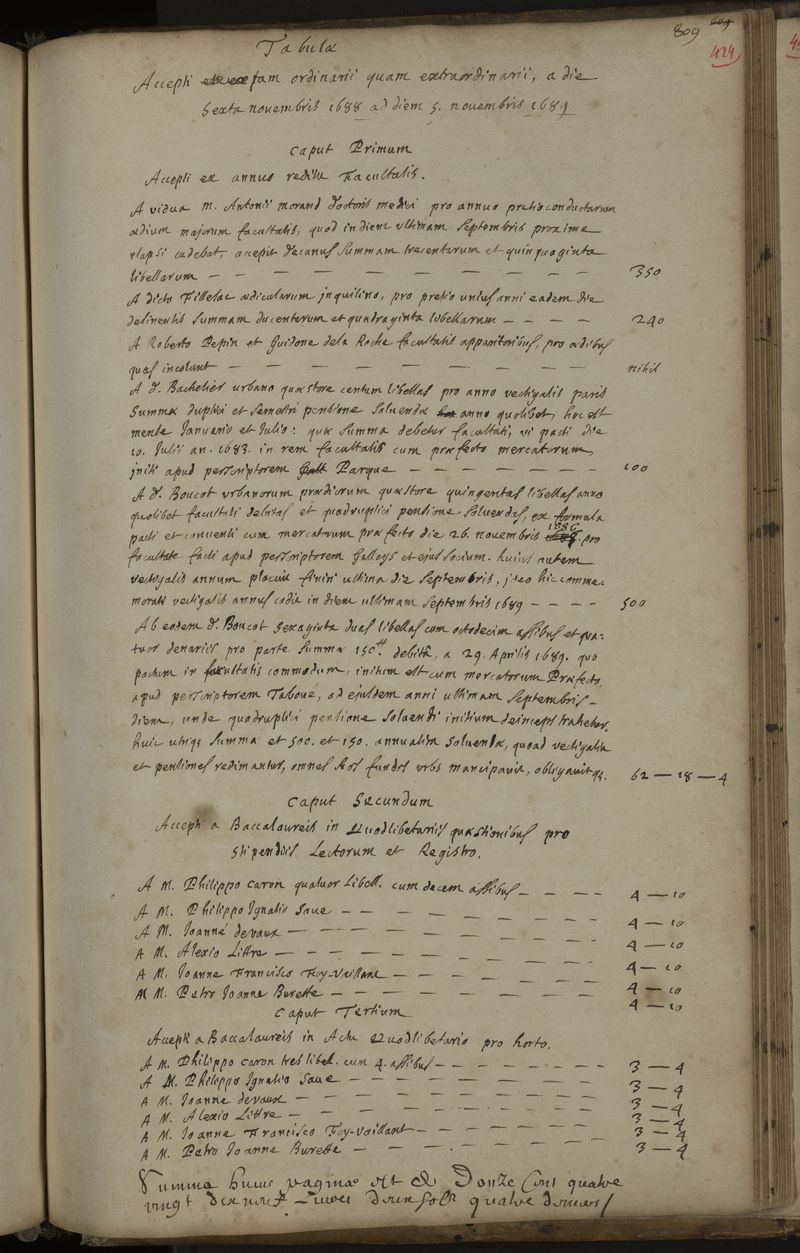 809
424
Tabula
Accepti tam ordinarii quam extraordinarii, a die
sexta novembris 1688 ad diem 5. novembris 1689
Caput Primum
Accepti ex annuo reditu Facultatis.
A vidua M. Antonii morand doctoris medici pro annuo pretio conductarum
ædium majorum facultatis, quod in diem ultimam Septembris proxime
elapsi cadebat, accepit decanus summam trecentarum et quinquaginta
libellarum — — — — — — — — — 350
A dicto Filleſae ædicularum inquilino, pro pretio unius anni eadem die
desinentis summam ducentarum et quadraginta libellarum — — — — 240
A Roberto Pepin et Guidone dela Roche facultatis apparitoribus, pro ædibus
quas incolunt — — — — — — — — nihil
A d. Bachelier urbano quæstore centum libellas pro anno vectigalis paris
summæ duplici et semestri pensione solvendæ anno quolibet, hoc est
mense Januario et Julio: quæ summa debetur facultati, vi pacti die
10. Julii an. 1683. in rem facultatis cum præfecto mercatorum
initi apud perscriptorem Parque — — — — — — — 100
A d. Boucot urbanorum prædiorum quæstore quingentas libellas anno
quolibet facultati debitas et quadruplici pensione solvendas, ex formula
pacti et conventi cum mercatorum præfecto die 26. novembris 1686. pro
facultate facti apud perscriptorem Galloys et ejus socium. hujus autem
vectigalis annum placuit finiri ultima die Septembris, ideo hic comme-
morati vectigalis annus cadit in diem ultimam Septembris 1689 — — — — 500
Ab eodem d. Boucot sexaginta duas libellas cum octodecim assibus et qua-
tuor denariis pro parte summæ 150tt. debitæ, a 29. Aprilis 1689. quo
pactum in facultatis commodum, initum est cum mercatorum Præfecto
apud perscriptorem Taboué, ad ejusdem anni ultimam Septembris
diem, unde quadruplici pensione solvendi initium deinceps trahetur.
huic utriqꝫ summæ et 500. et 150. annuatim solvendæ, quoad vectigalia
et pensiones redimantur, omnes suos fundos urbs mancipavit, obligavitqꝫ. 62 — 18 — 4
Caput Secundum
Accepti a Baccalaureis in Quodlibetariis quæstionibus pro
stipendiis Lectorum et Registro.
A M. Philippo Caron quatuor Libell. cum decem assibus — — — — 4 — 10
A M. Philippo Ignatio Saue — — — — — — — 4 — 10
A M. Joanne devaux — — — — — — — — 4 — 10
A M. Alexio Littre — — — — — — — — 4 — 10
A M. Joanne Francisco Foy-Vaillant — — — — — — 4 — 10
A M. Petro Joanne Burette — — — — — — — 4 — 10
Caput Tertium
Accepti a Baccalaureis in Actu Quodlibetario pro horto.
A M. Philippo Caron tres libel. cum 4. assibus — — — — — — — 3 — 4
A M. Philippo Ignatio Saue — — — — — — — 3 — 4
A M. Joanne devaux — — — — — — — — 3 — 4
A M. Alexio Littre — — — — — — — — 3 — 4
A M. Joanne Francisco Foy-Vaillant — — — — — — 3 — 4
A M. Petro Joanne Burette — — — — — — — 3 — 4
Summa hujus paginæ est de Douze Cens quatre
vingt dix neuf Livres Douze sols quatre deniers